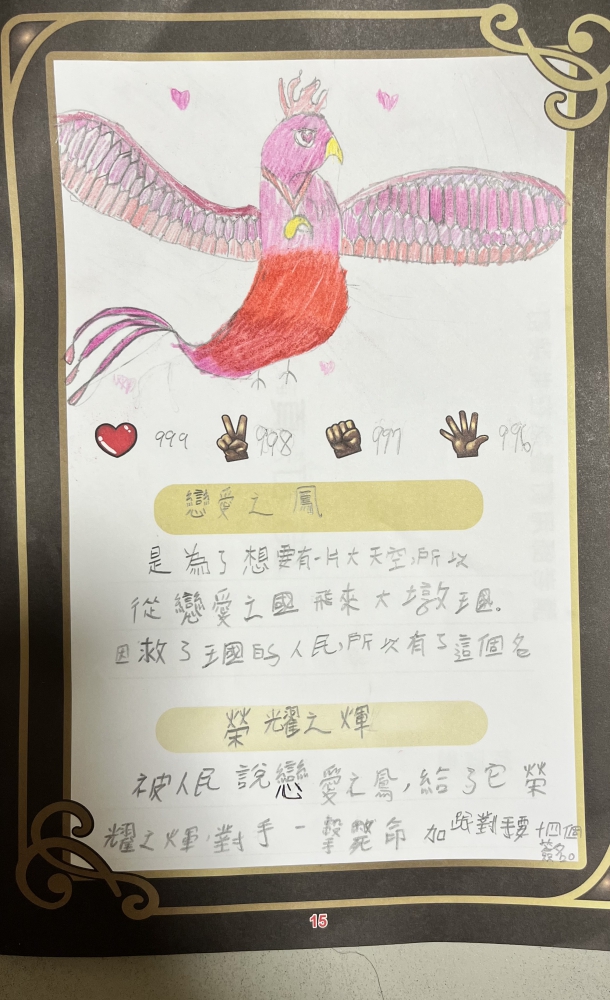 999 998 997 996
戀愛之鳳
是為了想要有一片大天空,所以
從戀愛之國飛來大墩王國。
因救了王國的人民,所以有了這個名
榮耀之輝
被人民說戀愛之鳳,給了它榮
耀之輝,對手一擊斃命 加 跟對手要十四個
簽名。
15